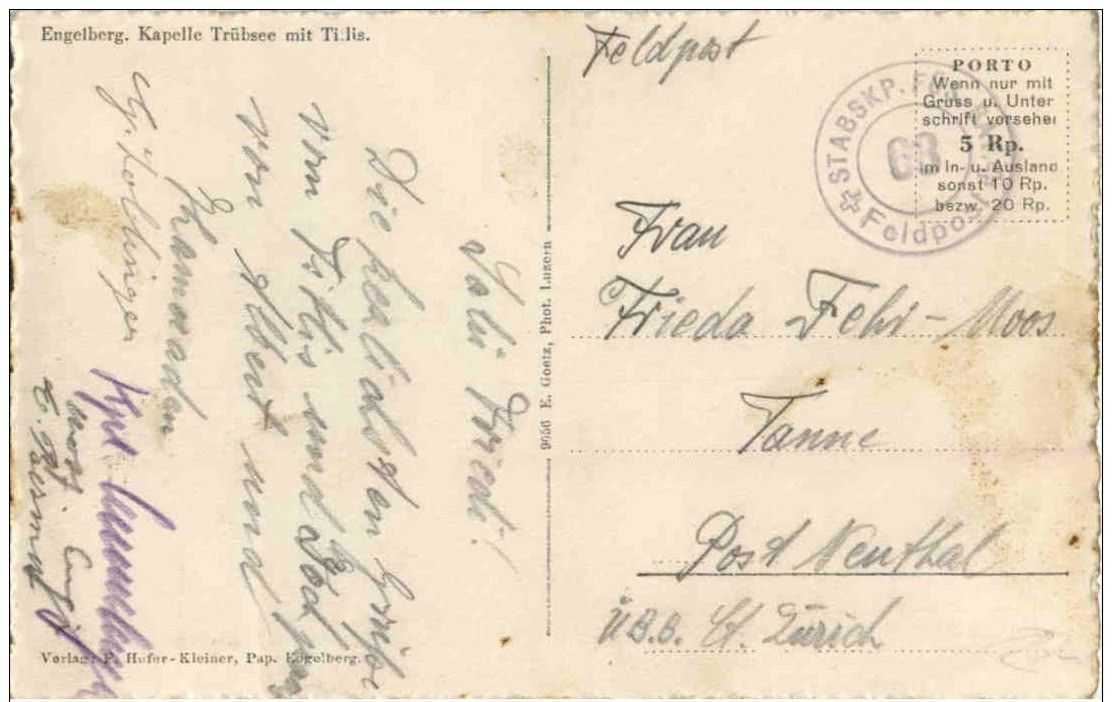 Engelberg. Kapelle Trübsee mit Titlis.
Sali Friedi!
Die herzlichsten Grüße
vom Titlis und
von Albert und
Kameraden
Kurt
9656 E. Goetz, Phot. Luzern
Verlag: P. Hofer-Kleiner, Pap. Engelberg.
Feldpost
PORTO
Wenn nur mit
Gruss u. Unter
schrift versehen
5 Rp.
im In- u. Ausland
sonst 10 Rp.
bezw. 20 Rp.
STABSKP.
Feldpost
Frau
Frieda Fehr-Moos
Tanne
Post Neuthal
Kt. Zürich